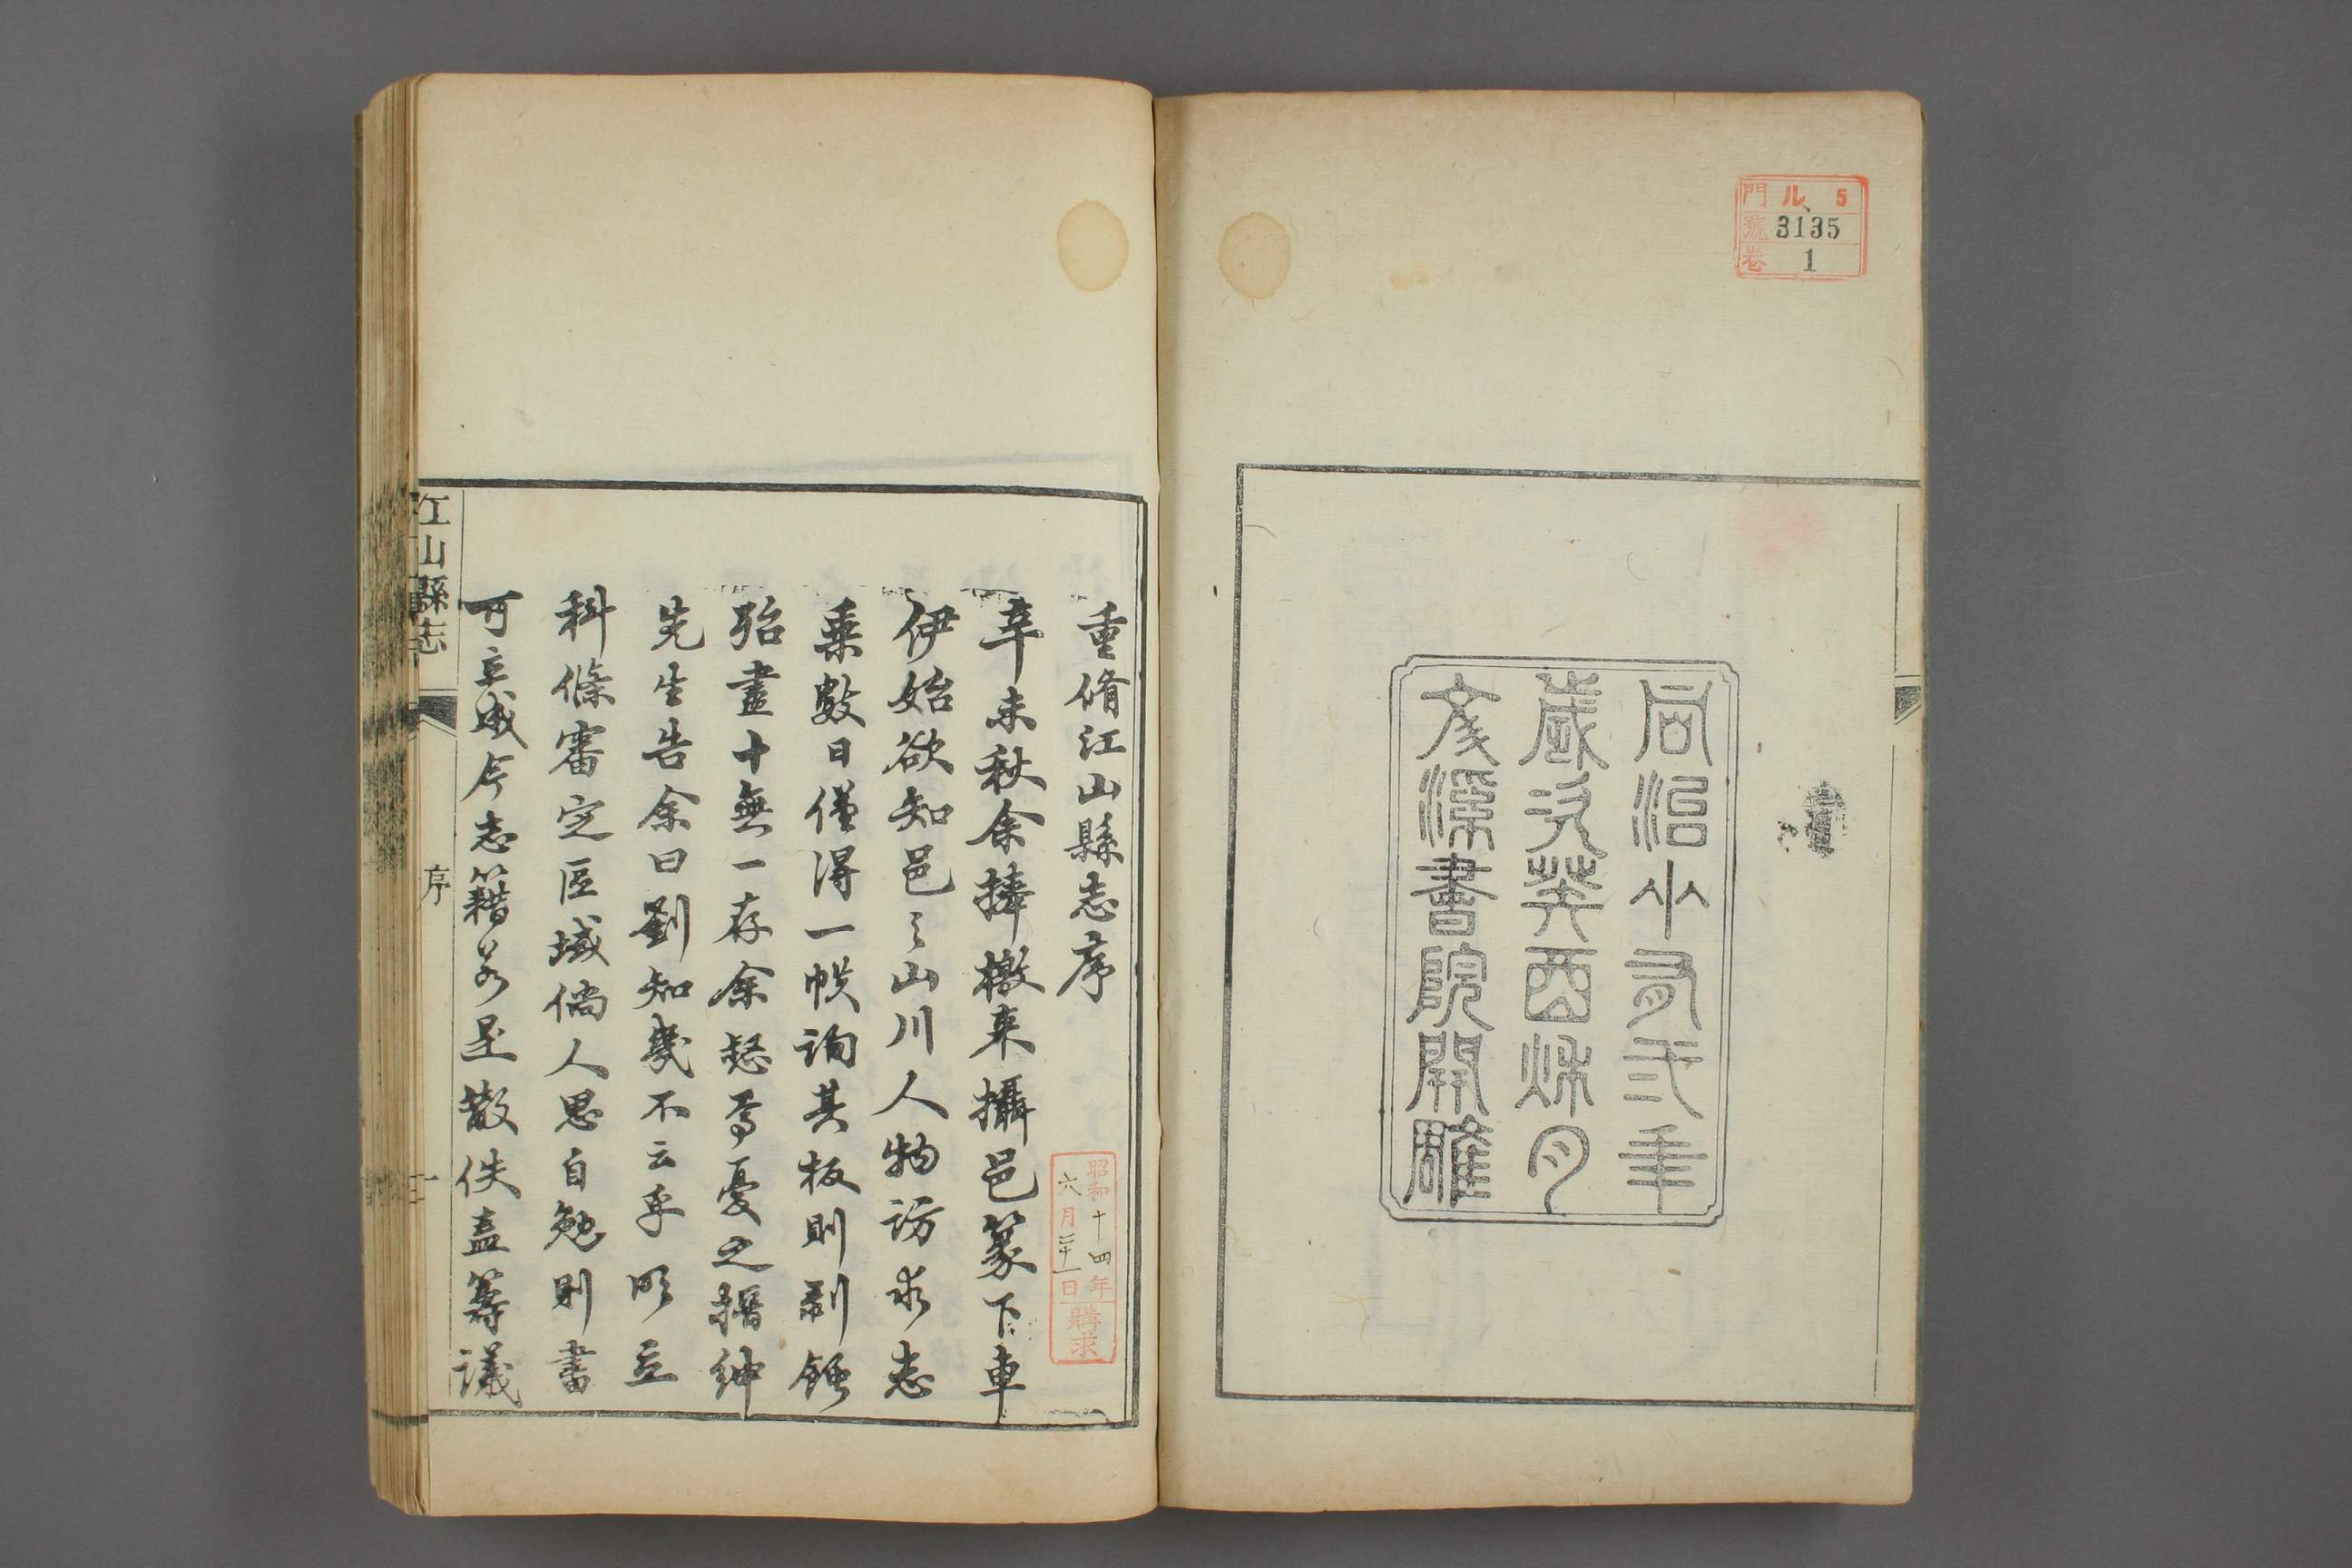 門 ル 5
號 3135
卷 1
同治十有弍年
歲次癸酉秌月
文溪書院開雕
重脩江山縣志序
昭和十四年
六月二十一日
購求
辛未秋余捧檄来攝邑篆下車
伊始欲知邑之山川人物訪求志
乗數日僅得一帙詢其板則剥蝕
殆盡十無一存余愁焉憂之搢紳
先生告余曰劉知幾不云乎明立
科條審定區域倘人思自勉則書
可立成今志籍若是散佚盍籌議
江山縣志
序
一